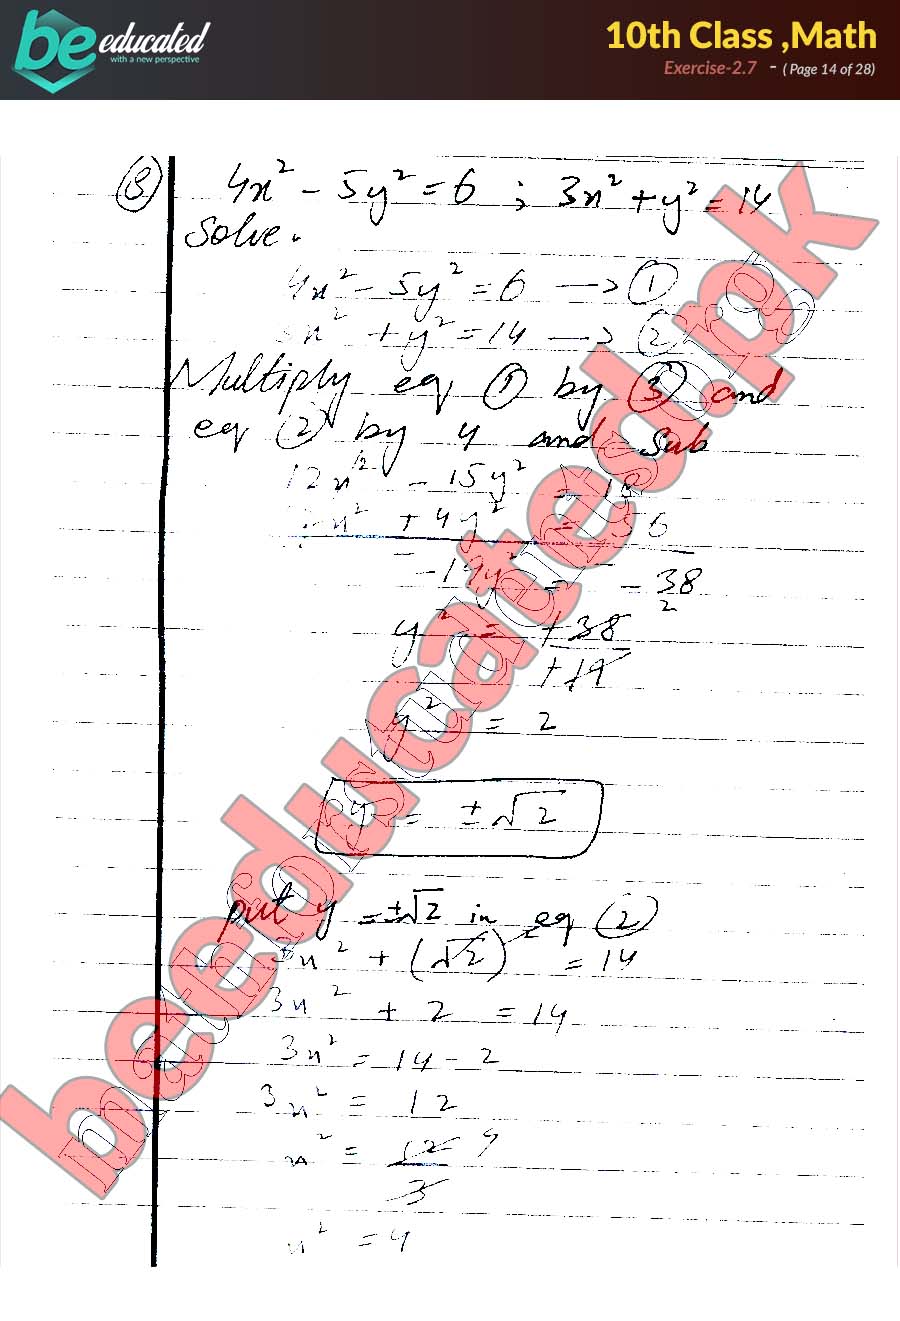 be educated
with a new perspective
10th Class ,Math
Exercise-2.7 - ( Page 14 of 28)
8 4x² - 5y² = 6 ; 3x² + y² = 14
Solve.
4x² - 5y² = 6 → ①
x² + y² = 14 → ②
Multiply eq ① by ③ and
eq ② by 4 and Sub
12x² - 15y² = 18
x² + 4y² = 56
- 19y² = - 38
y² = +38 2
+19
y² = 2
y = ±√2
put y = ±√2 in eq ②
3x² + (√2)² = 14
3x² + 2 = 14
3x² = 14 - 2
3x² = 12
x² = 12 4
3
x² = 4
beeducated.pk